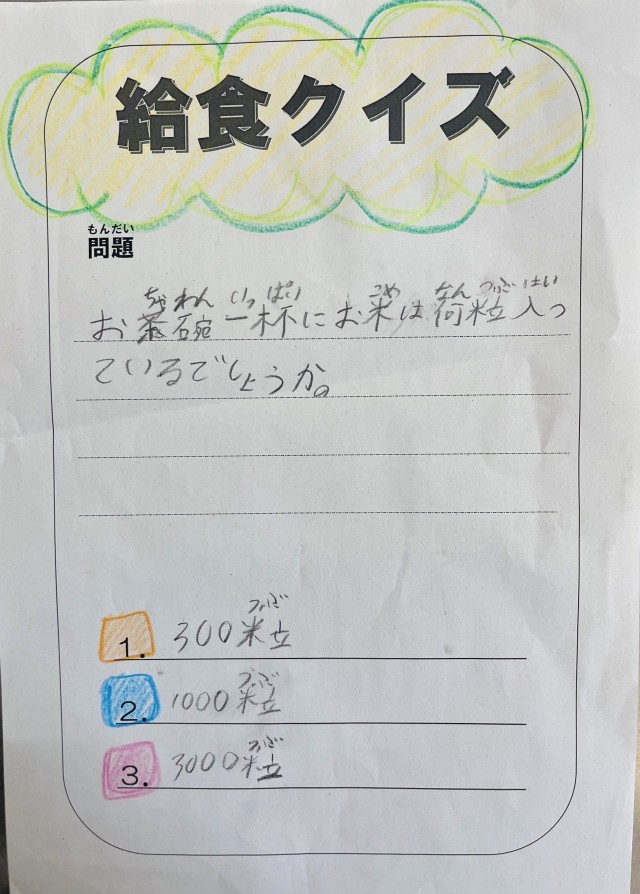 給食クイズ
もんだい
問題
ちゃわん いっぱい こめ なんつぶ はい
お茶碗一杯にお米は何粒入っ
ているでしょうか。
つぶ
1. 300粒
つぶ
2. 1000粒
つぶ
3. 3000粒